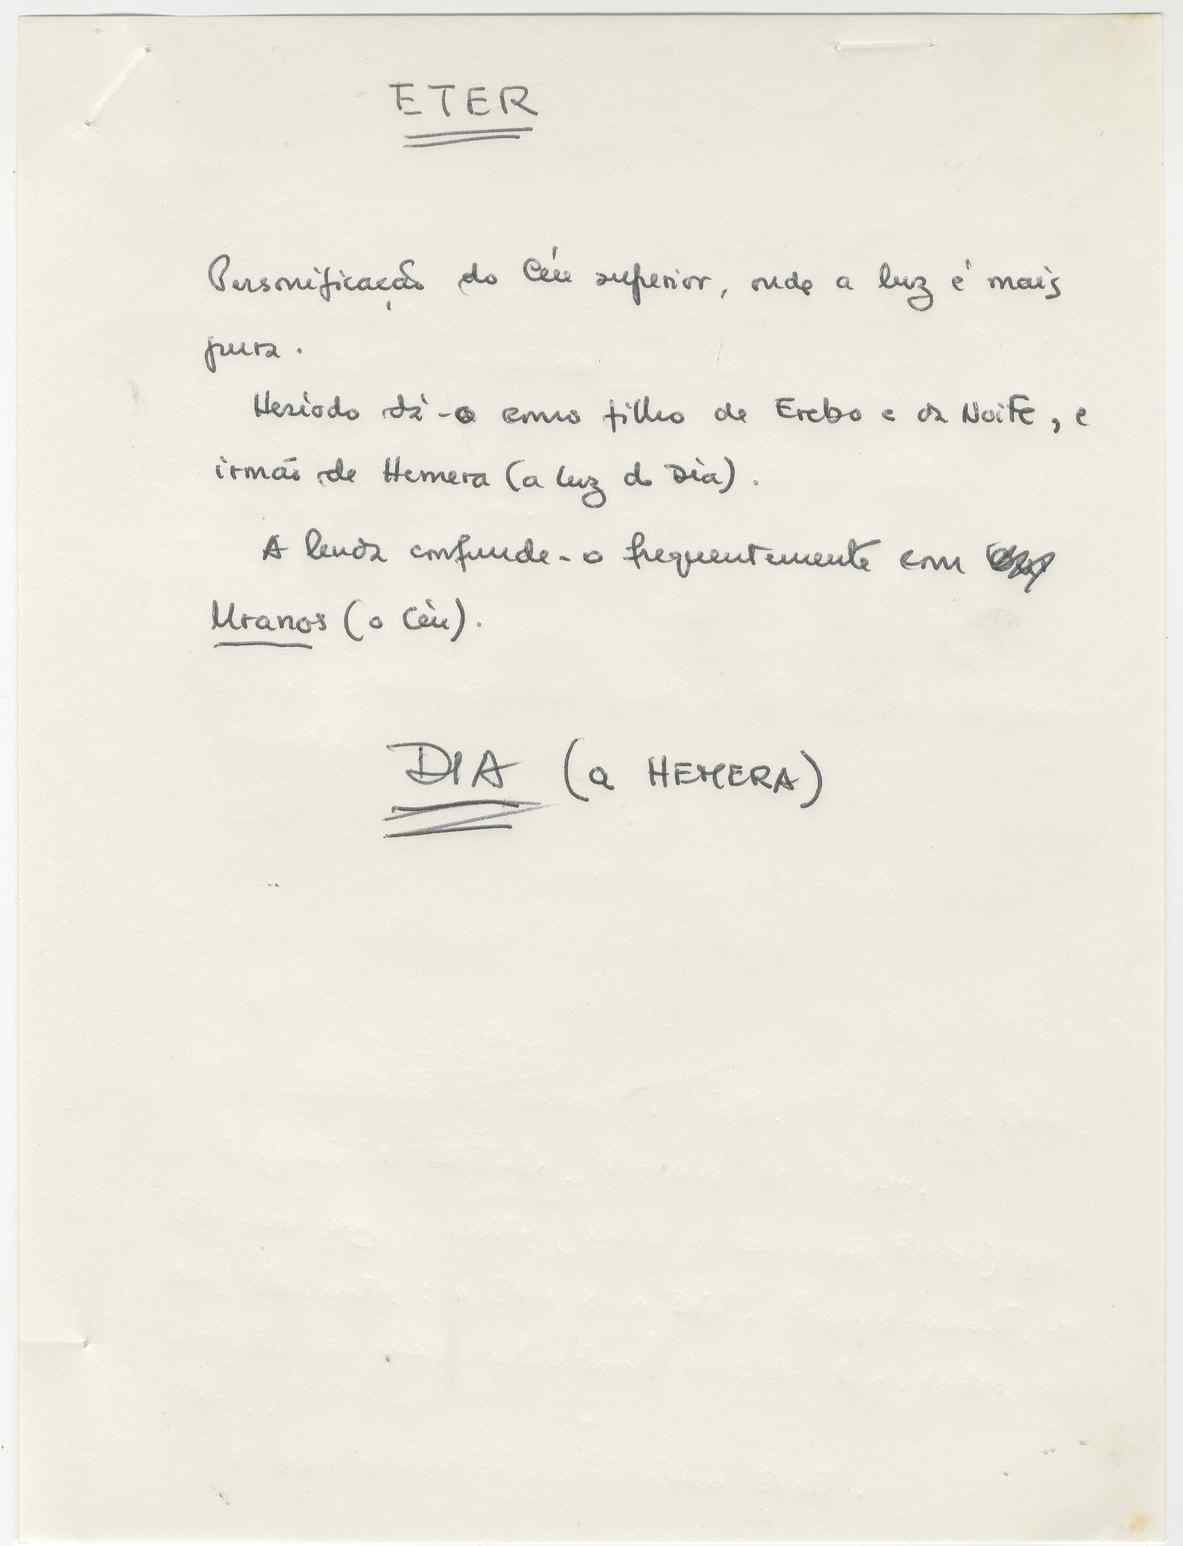 ETER
Personificação do Céu superior, onde a luz é mais
pura.
Hesíodo dá-o como filho de Erebo e da Noite, e
irmão de Hemera (a luz do Dia).
A lenda confunde-o frequentemente com
Uranos (o Céu).
DIA (a HEMERA)